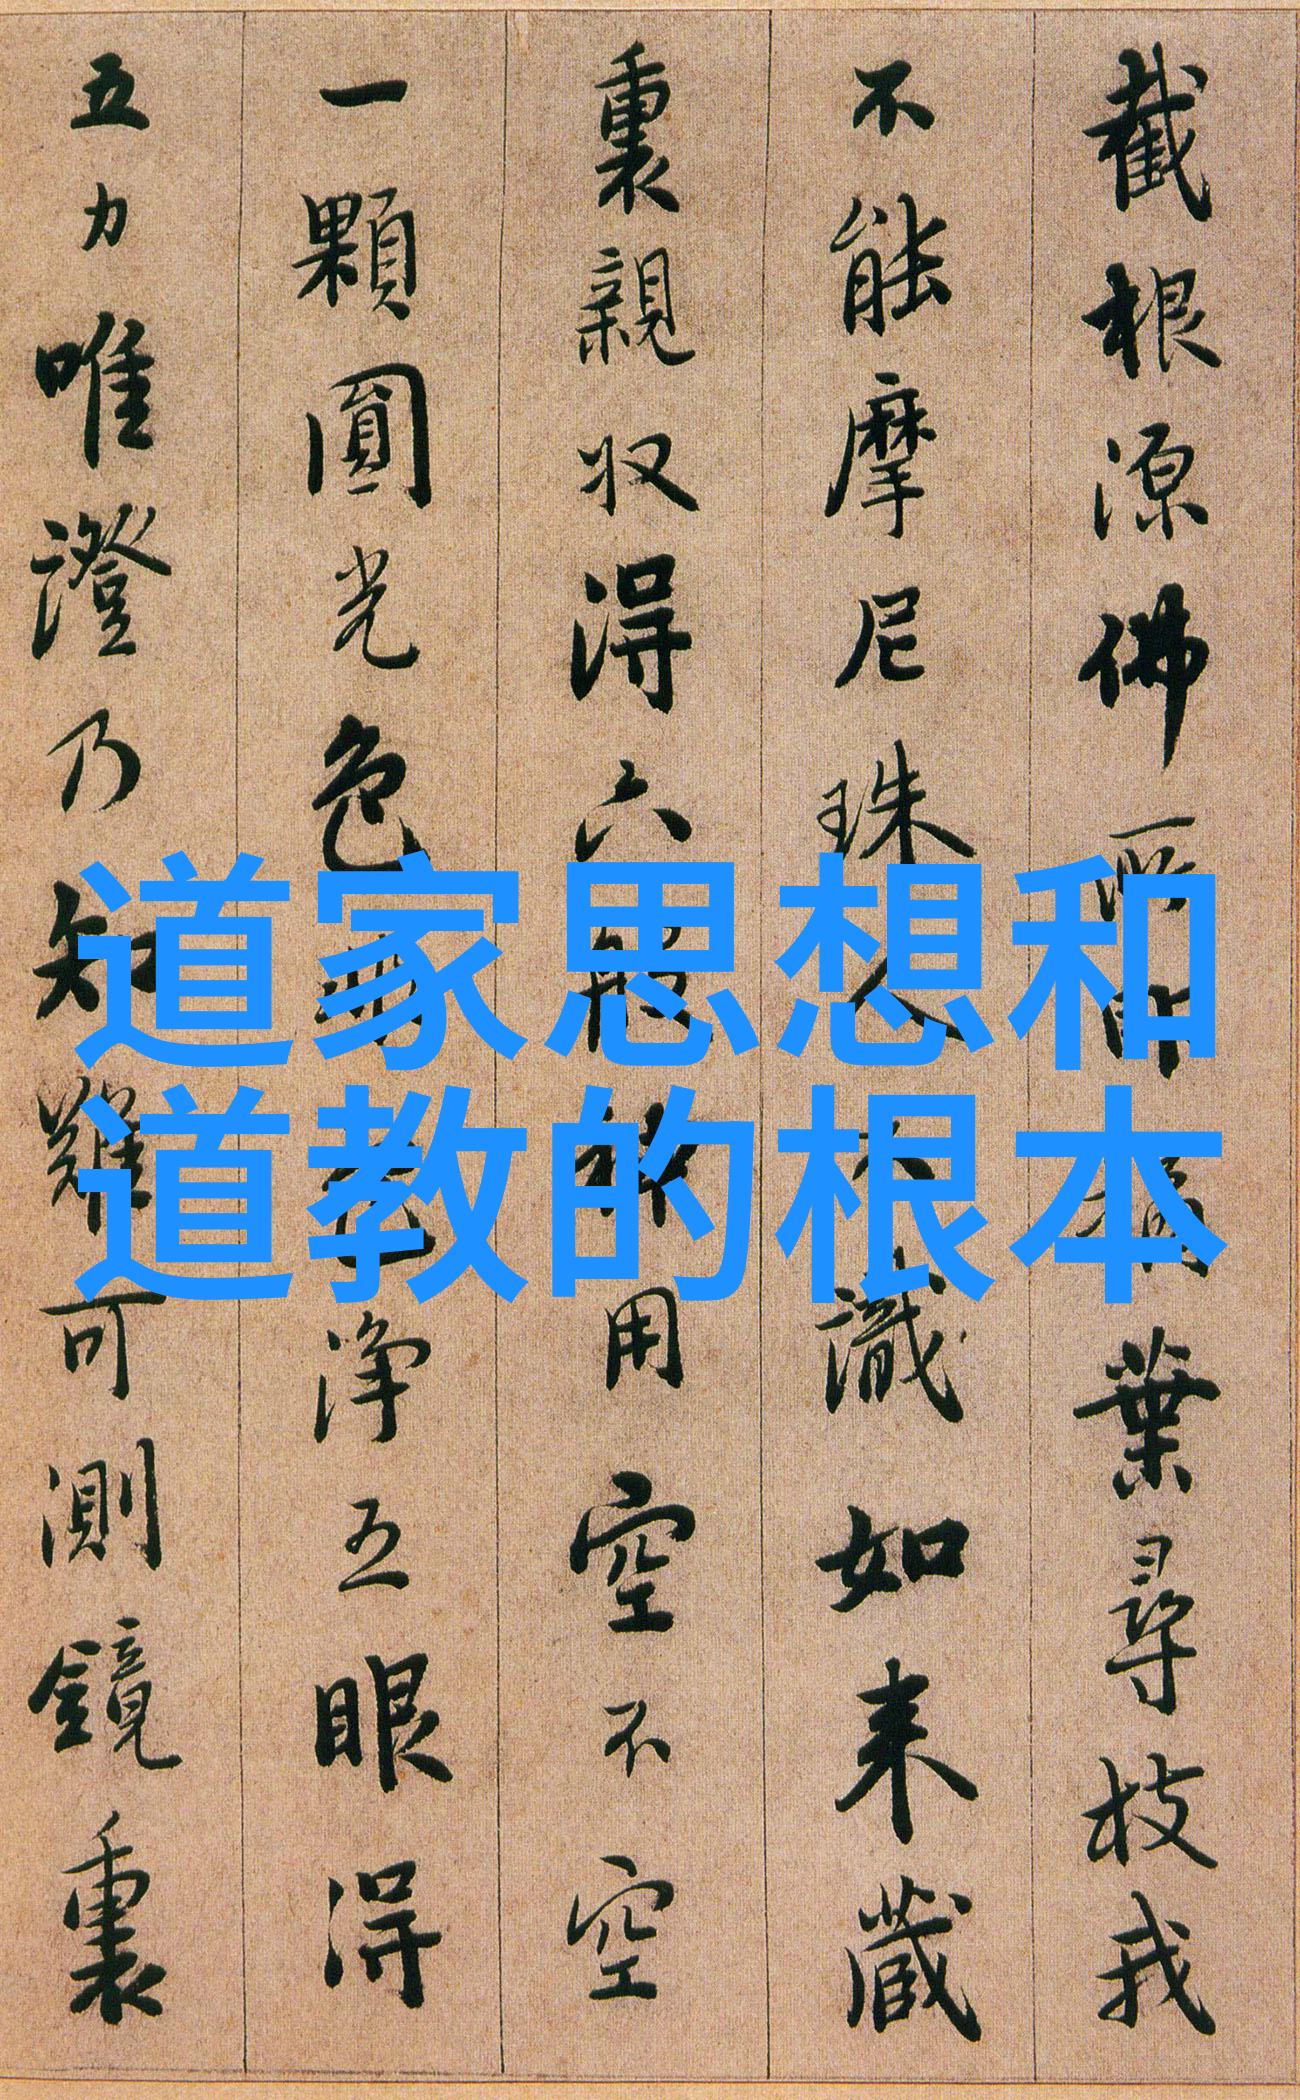 截根源佛所印摘葉尋枝我
不能摩尼珠人不識如来藏
裏親収得六般神用空不空
一顆圓光色非色淨五眼得
五力唯證乃知難可測鏡裏
道家思想和
道教的根本